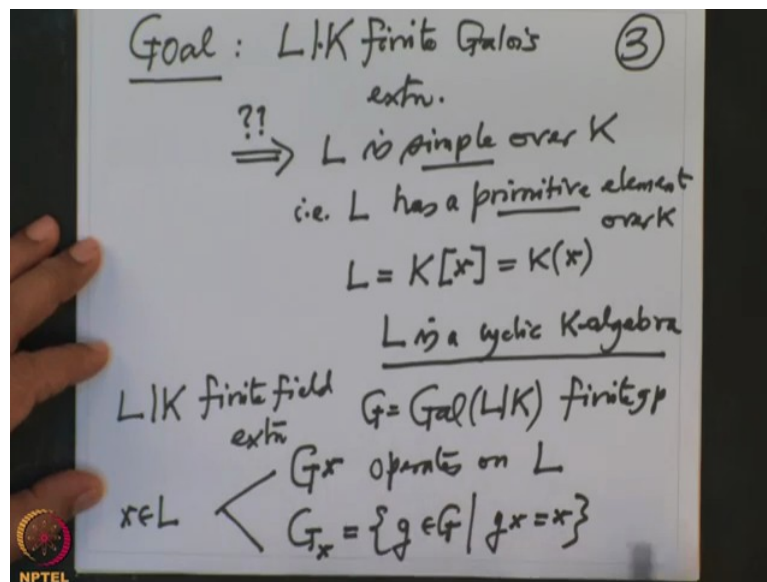 Goal : L|K finite Galois ③
extn.
?? ⟹ L is simple over K
i.e. L has a primitive element
over K
L = K[x] = K(x)
L is a cyclic K-algebra
L|K finite field extn G = Gal(L|K) finite gp
x ∈ L
Gx operates on L
G_x = {g ∈ G | gx = x}
NPTEL